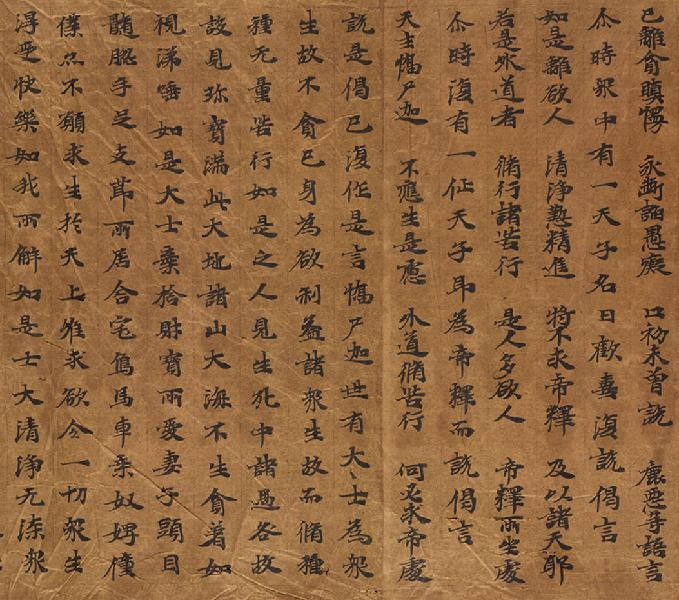 已離貪瞋慢　永斷諸愚癡　口初未曾說　麁惡等語言
尒時眾中有一天子名曰歡喜復說偈言
如是離欲人　清淨懃精進　將不求帝釋　及以諸天耶
若是外道者　脩行諸苦行　是人多欲人　帝釋所坐處
尒時復有一仙天子即為帝釋而說偈言
天主憍尸迦　不應生是慮　外道脩苦行　何必求帝處
說是偈已復作是言憍尸迦世有大士為眾
生故不貪己身為欲利益諸眾生故而脩種
種无量苦行如是之人見生死中諸過咎故
設見珍寶滿此大地諸山大海不生貪著如
視涕唾如是大士棄捨財寶所愛妻子頭目
髓腦手足支節所居舍宅象馬車乘奴婢僮
僕亦不願求生於天上唯求欲令一切眾生
得受快樂如我所解如是士大清淨无染眾